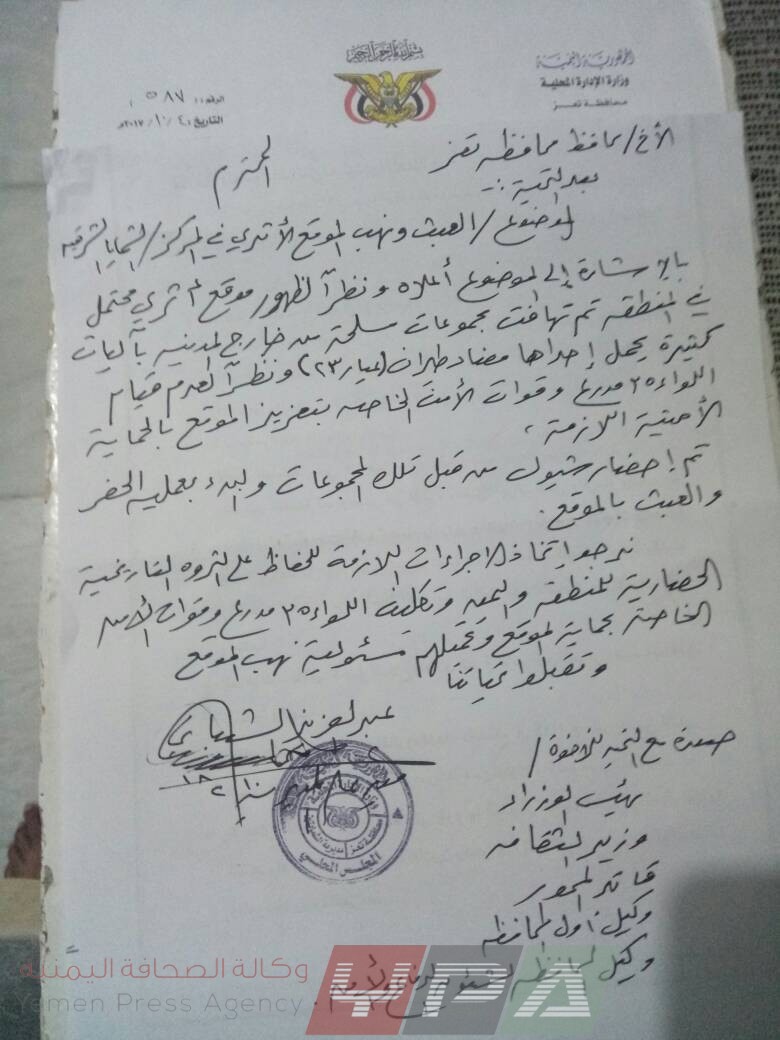 بسم الله الرحمن الرحيم
الجمهورية اليمنية
وزارة الإدارة المحلية
محافظة تعز
الرقم: ٥٨٧
التاريخ: ٤ / ١٠ / ٢٠١٧م
الأخ / محافظ محافظة تعز
المحترم
بعد التحية :-
الموضوع / العبث ونهب الموقع الأثري في المركز / الشمايا الشرقيه
بالإشارة إلى الموضوع أعلاه ونظراً لظهور موقع اثري محتمل
في المنطقه تم تهافت مجموعات مسلحة من خارج المدينه بآليات
كثيرة يحمل إحداها مضاد طيران (عيار ٢٣) ونظراً لعدم قيام
اللواء ٣٥ مدرع وقوات الأمن الخاصه بتعزيز الموقع بالحماية
الأمنية اللازمة ،
تم إحضار شيول من قبل تلك المجموعات والبدء بعملية الحفر
والعبث بالموقع .
نرجو اتخاذ الاجراءات اللازمة للحفاظ على الثروه التاريخية
الحضارية للمنطقه واليمن وتكليف اللواء ٣٥ مدرع وقوات الأمن
الخاصة بحماية الموقع وتحميلهم مسئولية نهب الموقع
وتقبلوا تحياتنا
عبدالعزيز الشيباني
صورة مع التحيه للاخوة /
رئيس الوزراء
وزير الثقافه
قائد المحور
وكيل أول المحافظه
وكيل المحافظه لشئون الدفاع والأمن .
محافظة تعز
المجلس المحلي
وكالة الصحافة اليمنية
Yemen Press Agency
YPA